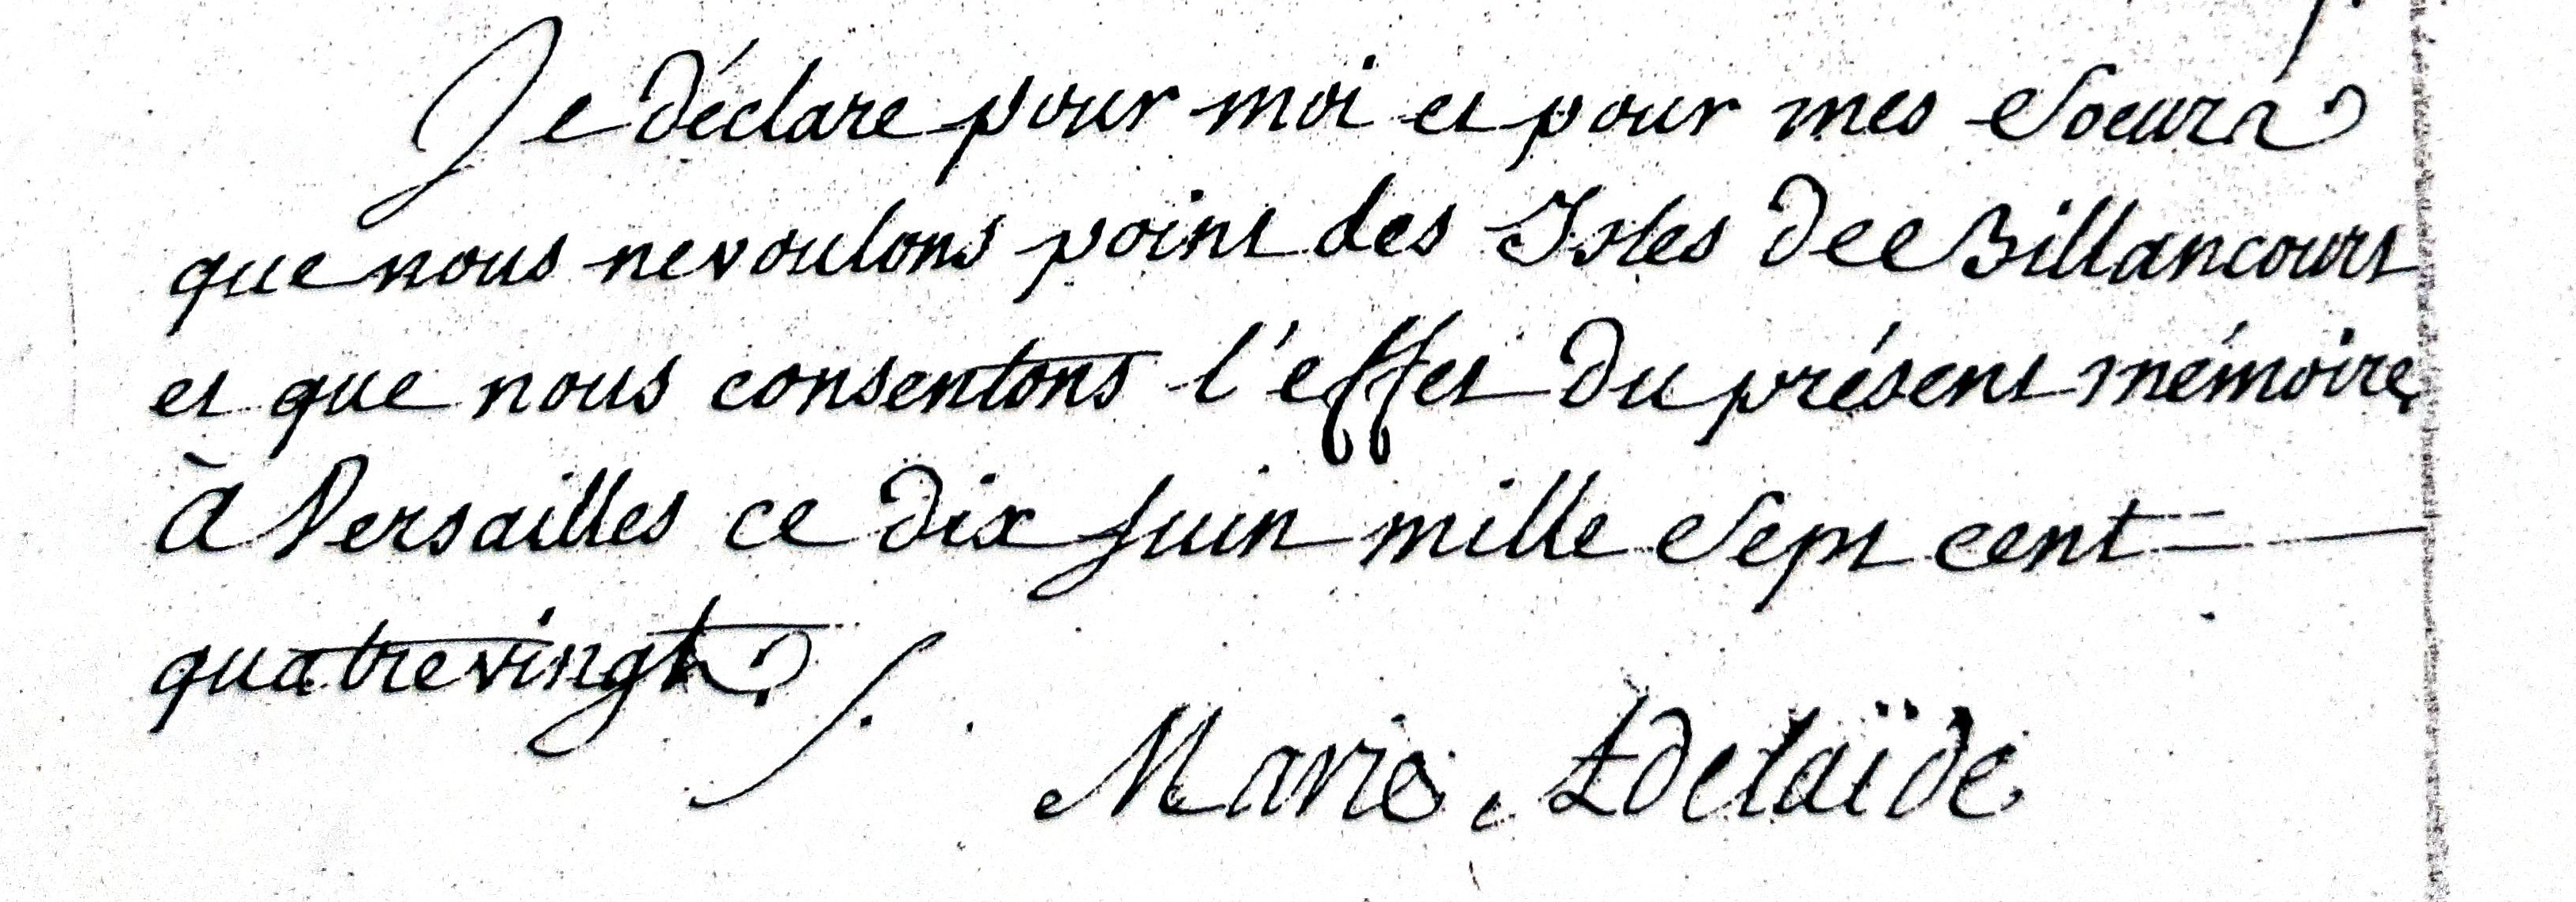 Je déclare pour moi et pour mes Soeurs
que nous ne voulons point des Isles de Billancourt
et que nous consentons l'effet du présent mémoire
à Versailles ce dix Juin mille Sept cent
quatrevingt ./.
Marie Adelaïde